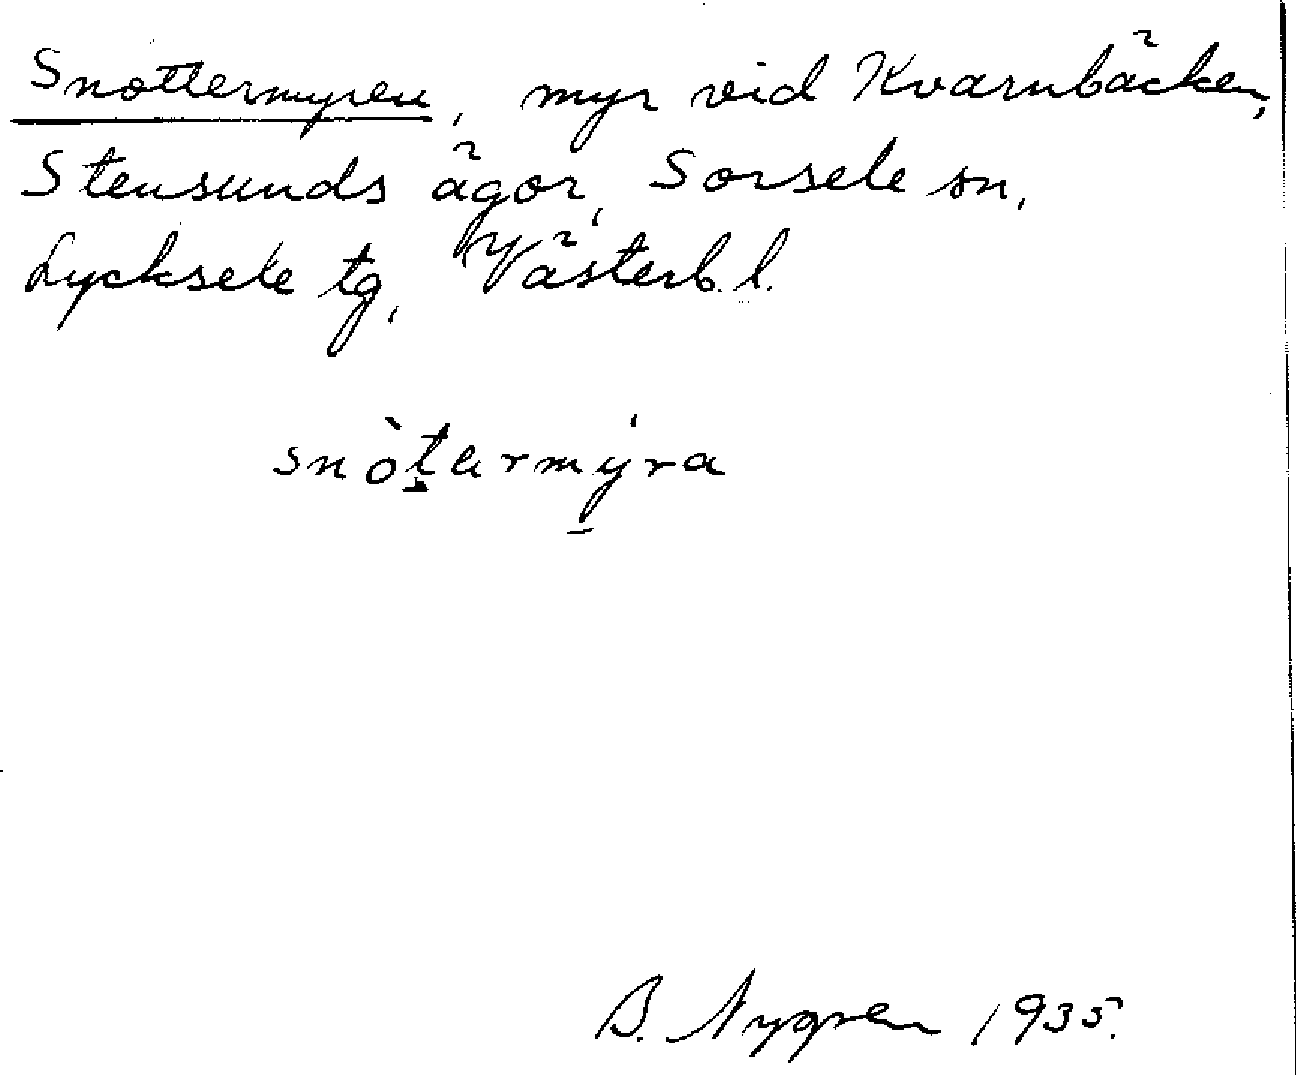 Snottermyren, myr vid Kvarnbäcken,
Stensunds ägor, Sorsele sn,
Lycksele tg, Västerb. l.
snòtermýra
B. Nygren 1935.